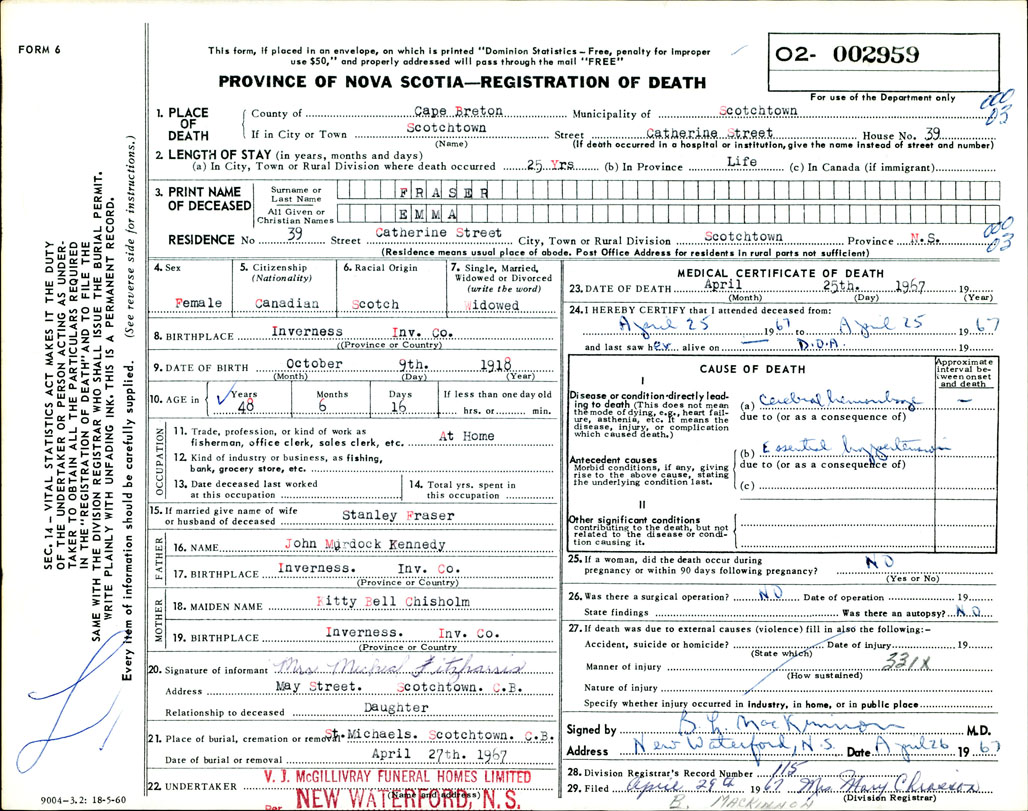 FORM 6
This form, if placed in an envelope, on which is printed "Dominion Statistics – Free, penalty for improper
use $50," and properly addressed will pass through the mail "FREE"
PROVINCE OF NOVA SCOTIA—REGISTRATION OF DEATH
02- 002959
For use of the Department only
000
03
1. PLACE OF DEATH
County of Cape Breton Municipality of Scotchtown
If in City or Town Scotchtown Street Catherine Street House No. 39
(Name) (If death occurred in a hospital or institution, give the name instead of street and number)
2. LENGTH OF STAY (in years, months and days)
(a) In City, Town or Rural Division where death occurred 25 Yrs (b) In Province Life (c) In Canada (if immigrant)
3. PRINT NAME OF DECEASED
Surname or Last Name FRASER
All Given or Christian Names EMMA
RESIDENCE No 39 Street Catherine Street City, Town or Rural Division Scotchtown Province N.S.
000
03
(Residence means usual place of abode. Post Office Address for residents in rural parts not sufficient)
4. Sex
Female
5. Citizenship
(Nationality)
Canadian
6. Racial Origin
Scotch
7. Single, Married,
Widowed or Divorced
(write the word)
Widowed
8. BIRTHPLACE Inverness Inv. Co.
((Province or Country)
9. DATE OF BIRTH October 9th. 1918
(Month) (Day) (Year)
10. AGE in Years Months Days If less than one day old
48 6 16 hrs. or min.
OCCUPATION
11. Trade, profession, or kind of work as
fisherman, office clerk, sales clerk, etc. At Home
12. Kind of industry or business, as fishing,
bank, grocery store, etc.
13. Date deceased last worked
at this occupation
14. Total yrs. spent in
this occupation
15. If married give name of wife
or husband of deceased Stanley Fraser
FATHER
16. NAME John Murdock Kennedy
17. BIRTHPLACE Inverness. Inv. Co.
(Province or Country)
MOTHER
18. MAIDEN NAME Kitty Bell Chisholm
19. BIRTHPLACE Inverness. Inv. Co.
(Province or Country
20. Signature of informant Mrs. Michael Fitzharris
Address May Street. Scotchtown. C.B.
Relationship to deceased Daughter
21. Place of burial, cremation or removal St. Michaels. Scotchtown. C.B.
Date of burial or removal April 27th. 1967
22. UNDERTAKER V. J. McGILLIVRAY FUNERAL HOMES LIMITED
(Name and address)
Per NEW WATERFORD, N.S.
MEDICAL CERTIFICATE OF DEATH
23. DATE OF DEATH April 25th. 1967 19
(Month) (Day) (Year)
24. I HEREBY CERTIFY that I attended deceased from:
April 25 1967 to April 25 1967
and last saw her alive on D.O.A. 19
CAUSE OF DEATH
Approximate
interval be-
tween onset
and death
I
Disease or condition directly lead-
ing to death (This does not mean
the mode of dying, e.g., heart fail-
ure, asthenia, etc. It means the
disease, injury, or complication
which caused death.)
(a) Cerebral hemorrhage –
due to (or as a consequence of)
Antecedent causes
Morbid conditions, if any, giving
rise to the above cause, stating
the underlying condition last.
(b) Essential hypertension
due to (or as a consequence of)
(c)
II
Other significant conditions
contributing to the death, but not
related to the disease or condi-
tion causing it.
25. If a woman, did the death occur during
pregnancy or within 90 days following pregnancy? NO
(Yes or No)
26. Was there a surgical operation? NO Date of operation 19
State findings Was there an autopsy? NO
27. If death was due to external causes (violence) fill in also the following:–
Accident, suicide or homicide? Date of injury 19
(State which)
Manner of injury 331X
(How sustained)
Nature of injury
Specify whether injury occurred in industry, in home, or in public place
Signed by B. L. MacKinnon M.D.
Address New Waterford, N.S. Date April 26 1967
28. Division Registrar's Record Number 115
29. Filed April 29th 1967 Mrs. Mary Chiasson
(Division Registrar)
B. MACKINNON
SEC. 14 – VITAL STATISTICS ACT MAKES IT THE DUTY
OF THE UNDERTAKER OR PERSON ACTING AS UNDER-
TAKER TO OBTAIN ALL THE PARTICULARS REQUIRED
IN THE "REGISTRATION OF DEATH" AND TO FILE THE
SAME WITH THE DIVISION REGISTRAR WHO SHALL ISSUE THE BURIAL PERMIT.
WRITE PLAINLY WITH UNFADING INK. THIS IS A PERMANENT RECORD.
Every item of information should be carefully supplied. (See reverse side for instructions.)
9004-3.2: 18-5-60